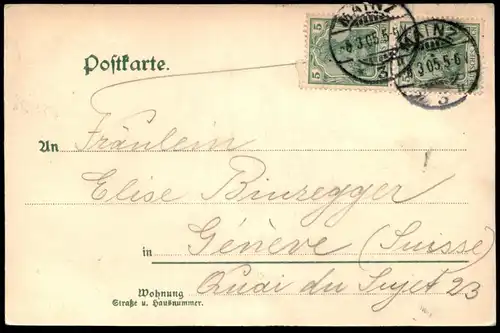 MAINZ
8.3.05.5-6N
3
MAINZ
8.3.05.5-6N
3
5
5
Postkarte.
An Fräulein
Elise Binzegger
in Génève (Suisse)
Wohnung
Straße u. Hausnummer.
Quai du Sujet 23